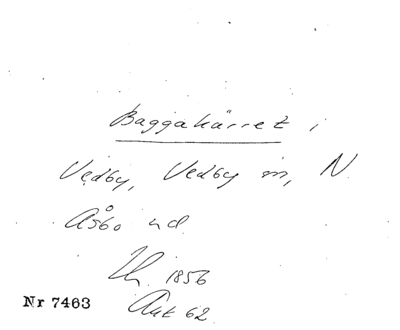 Baggakärret i
Vedby, Vedby sn, N.
Åsbo hd.
Lh. 1856
Akt 62
Nr 7463